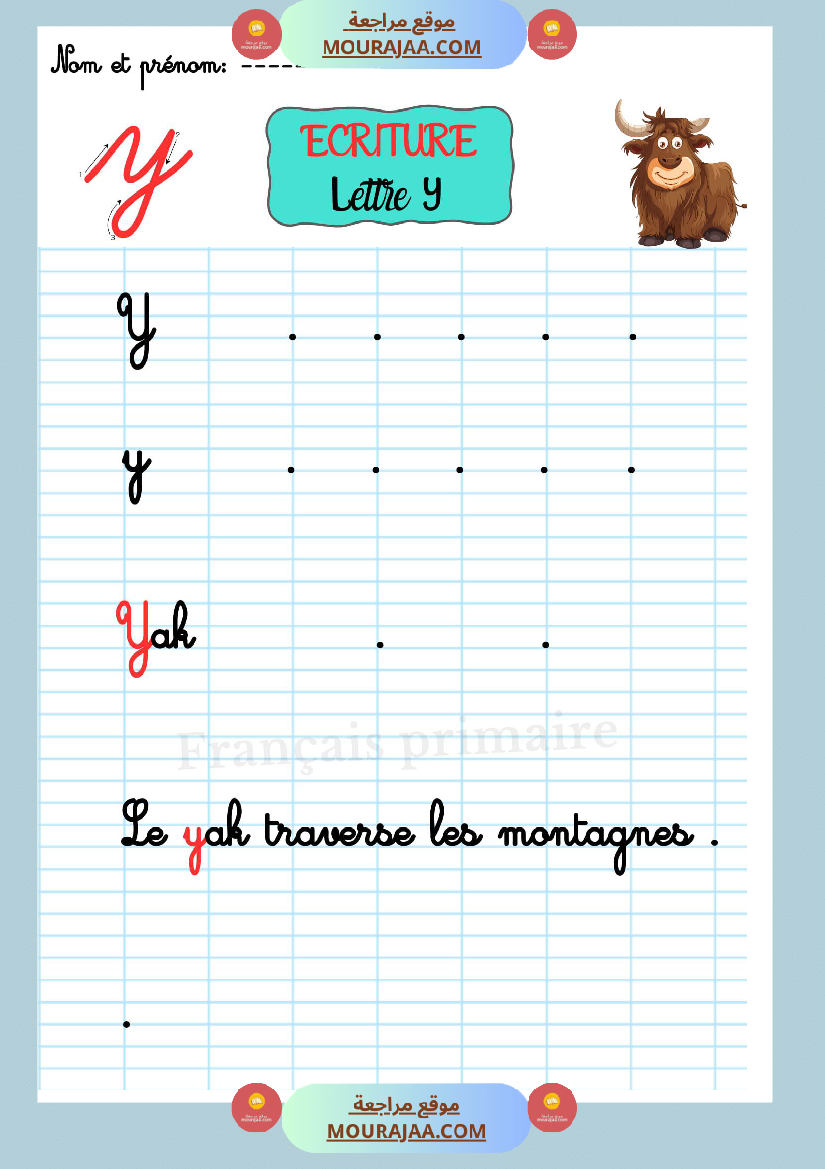 موقع مراجعة
MOURAJAA.COM
Nom et prénom: -----
ECRITURE
Lettre y
y
1
2
3
Y
y
Yak
Français primaire
Le yak traverse les montagnes .
موقع مراجعة
MOURAJAA.COM